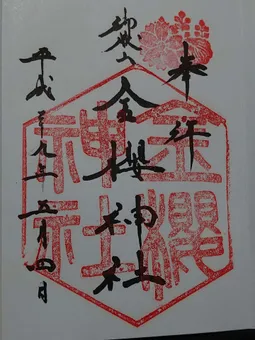 奉拝
金櫻神社
平成二九年五月四日
金櫻
神社